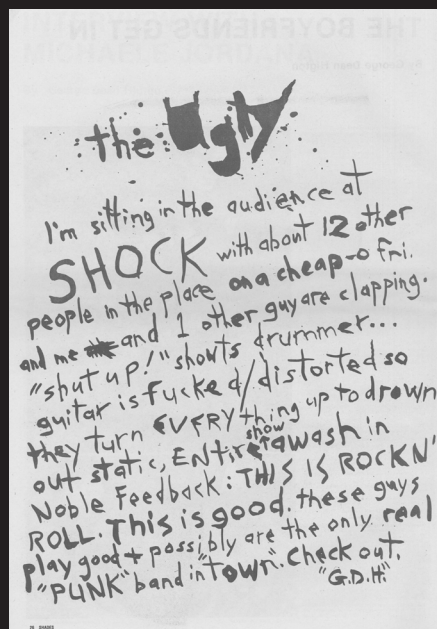 the Ugly
I'm sitting in the audience at
SHOCK with about 12 other
people in the place on a cheap-o fri.
and me and 1 other guy are clapping.
"shut up!" shouts drummer...
guitar is fucked/distorted so
they turn EVERYthing up to drown
out static, ENTIRE show awash in
Noble Feedback: THIS IS ROCKN'
ROLL. This is good. these guys
play good + possibly are the only real
"PUNK" band in "town". Check out.
"G.D.H."
THE BOYFRIENDS GET IN
26 SHADES